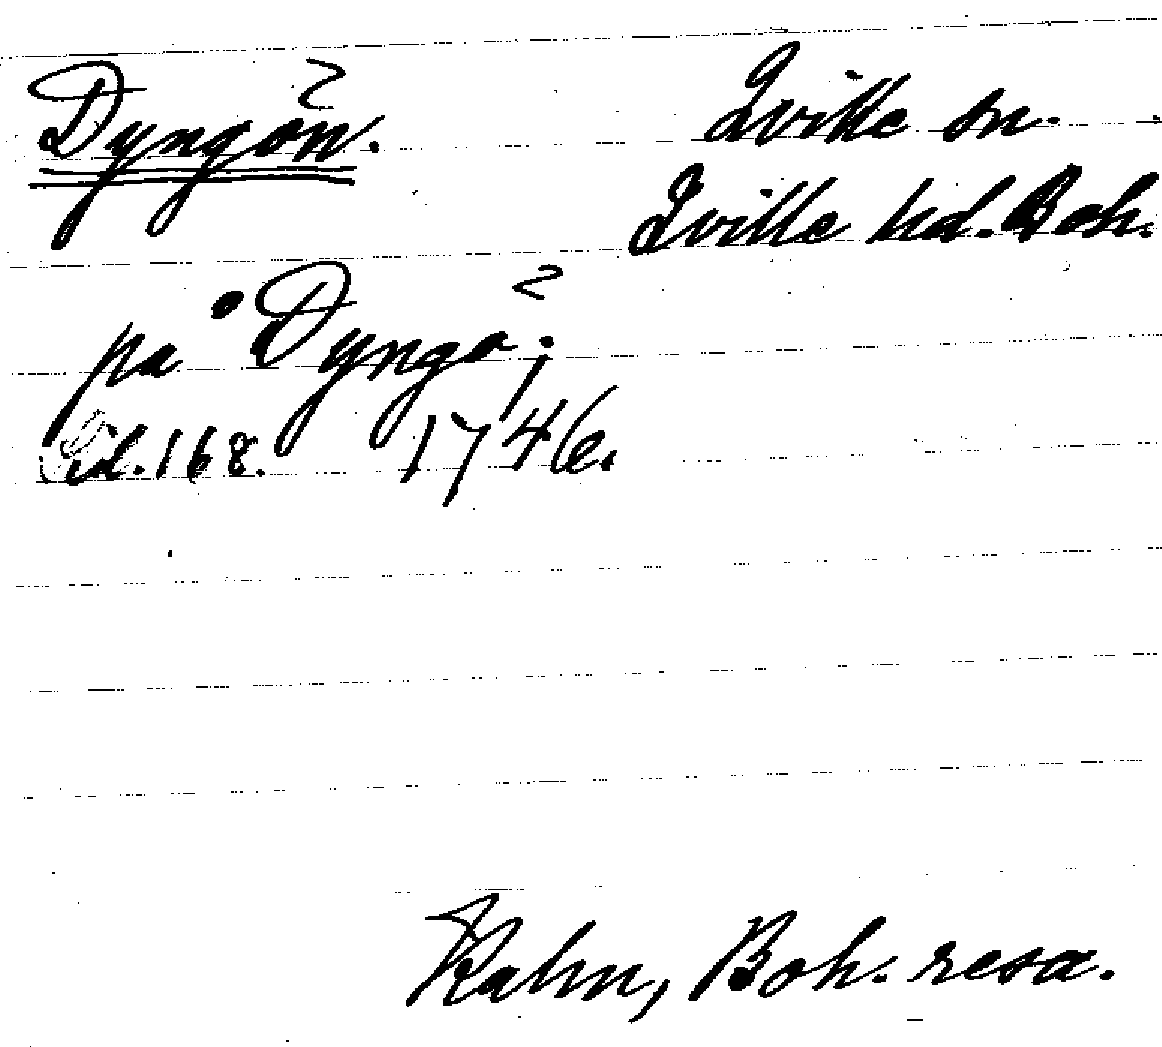 Dyngön. Qville sn.
Qville hd. Boh.
på Dyngö;
Sid. 168. 1746.
Kalm, Boh. resa.